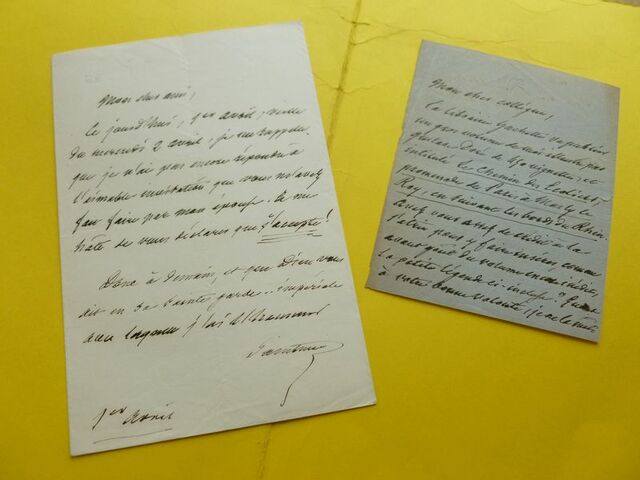 Mon cher ami,
Ce jourd'hui, 1er avril, veille
du mercredi 2 avril, je me rappelle
que je n'ai pas encore répondu à
l'aimable invitation que vous m'avez
fau faire par mon épouse. Je me
hâte de vous déclarer que j'accepte!
Donc à demain, et que Dieu vous
ait en sa sainte garde.. impériale
avec laquelle j'ai
Saintine
1er avril
Mon cher collègue,
La librairie Hachette va publier
un gros volume de moi illustré par
Gustave Doré de 450 vignettes, et
intitulé Le Chemin des Écoliers,
promenade de Paris à Marly-le-
Roy, en suivant les bords du Rhin.
assez de crédit à la
pour y faire insérer, comme
avant-goût du volume encore inédit,
la petite légende ci-incluse?
à votre bonne volonté, je ne la mets